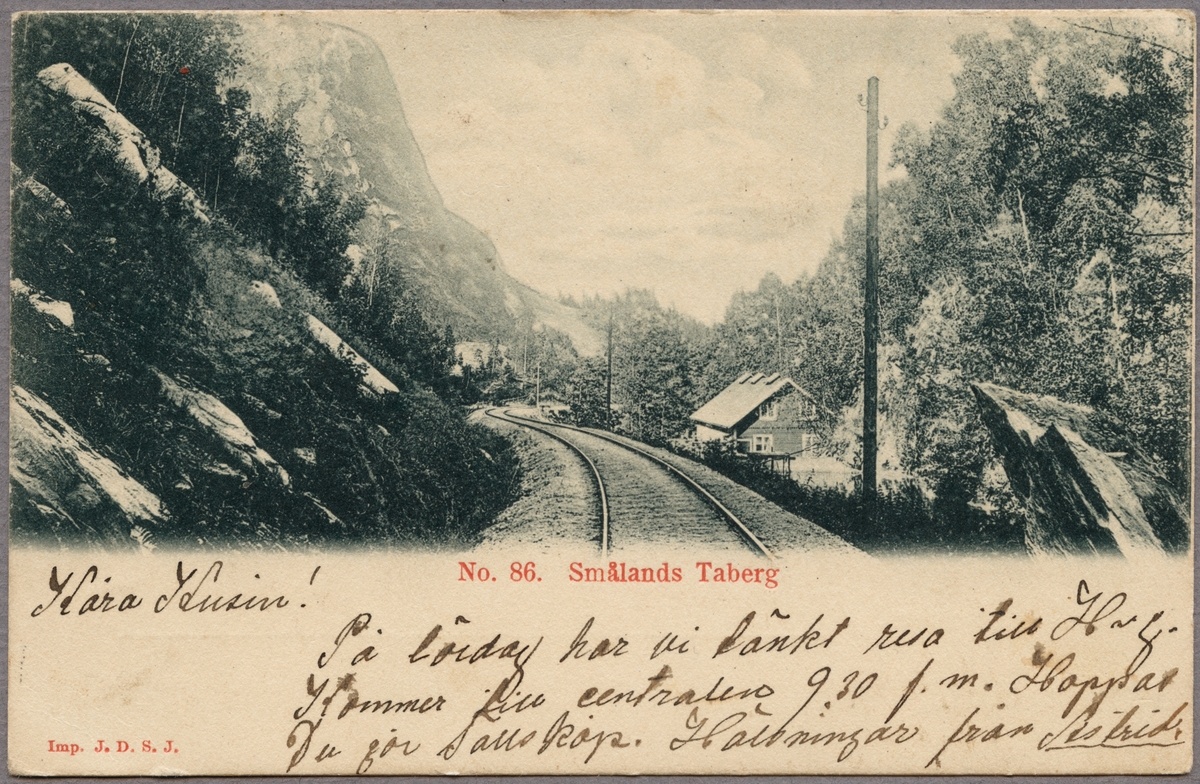 No. 86. Smålands Taberg
Kära Kusin!
På lördag har vi tänkt resa till H-g.
Kommer till centralen 9 30 f. m. Hoppas
Du gör sällskap. Hälsningar från Astrid.
Imp. J. D. S. J.